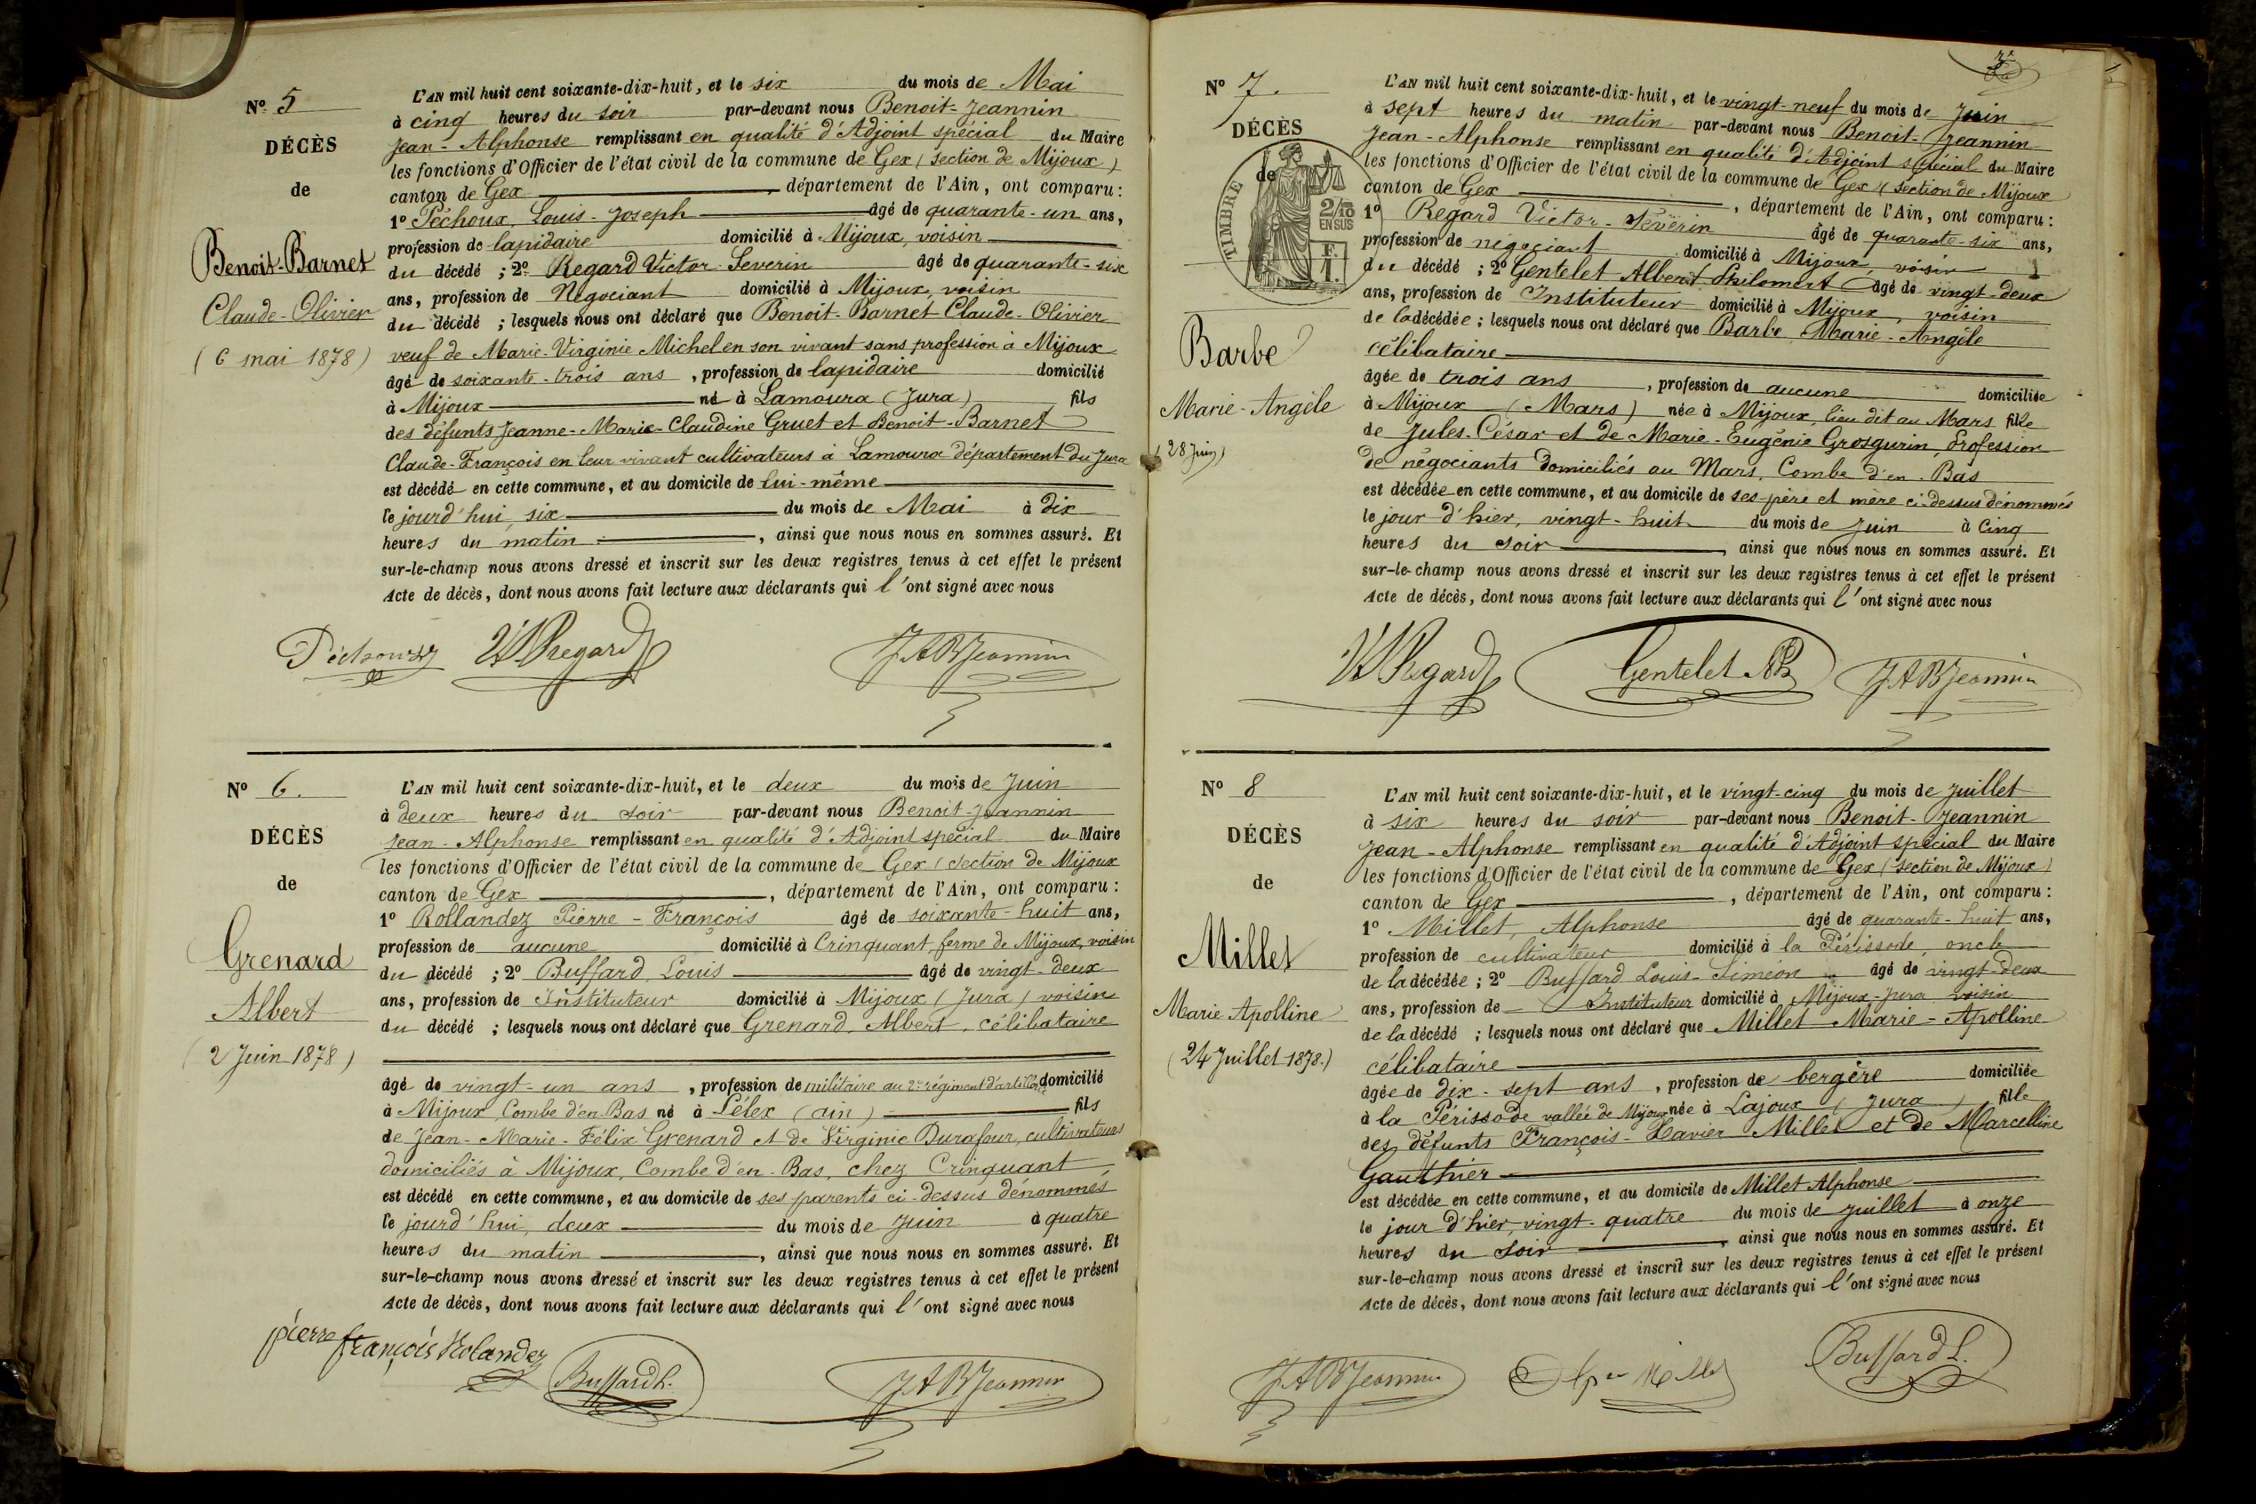 Nº 5
DÉCÈS
de
Benoit-Barnet
Claude-Olivier
(6 mai 1878)
L'AN mil huit cent soixante-dix-huit, et le six du mois de Mai
à cinq heures du soir par-devant nous Benoit-Jeannin
Jean-Alphonse remplissant en qualité d'Adjoint spécial du Maire
les fonctions d'Officier de l'état civil de la commune de Gex (section de Mijoux)
canton de Gex, département de l'Ain, ont comparu :
1º Péchoux Louis-Joseph âgé de quarante-un ans,
profession de lapidaire domicilié à Mijoux, voisin
du décédé ; 2º Regard Victor Severin âgé de quarante-six
ans, profession de Négociant domicilié à Mijoux, voisin
du décédé ; lesquels nous ont déclaré que Benoit-Barnet Claude-Olivier
veuf de Marie-Virginie Michel en son vivant sans profession à Mijoux
âgé de soixante-trois ans, profession de lapidaire domicilié
à Mijoux né à Lamoura (Jura) fils
des défunts Jeanne-Marie-Claudine Gruet et Benoit-Barnet
Claude-François en leur vivant cultivateurs à Lamoura département du Jura
est décédé en cette commune, et au domicile de lui-même
le jourd'hui six du mois de Mai à dix
heures du matin, ainsi que nous nous en sommes assuré. Et
sur-le-champ nous avons dressé et inscrit sur les deux registres tenus à cet effet le présent
Acte de décès, dont nous avons fait lecture aux déclarants qui l'ont signé avec nous
Péchoux VS Regard JAB Jeannin
Nº 6.
DÉCÈS
de
Grenard
Albert
(2 Juin 1878)
L'AN mil huit cent soixante-dix-huit, et le deux du mois de Juin
à deux heures du soir par-devant nous Benoit-Jeannin
Jean-Alphonse remplissant en qualité d'Adjoint spécial du Maire
les fonctions d'Officier de l'état civil de la commune de Gex (section de Mijoux
canton de Gex, département de l'Ain, ont comparu :
1º Rollandez Pierre-François âgé de soixante-huit ans,
profession de aucune domicilié à Crinquant, ferme de Mijoux, voisin
du décédé ; 2º Buffard Louis âgé de vingt-deux
ans, profession de Instituteur domicilié à Mijoux (Jura) voisin
du décédé ; lesquels nous ont déclaré que Grenard Albert, célibataire
âgé de vingt-un ans, profession de militaire au 2e régiment d'artillerie domicilié
à Mijoux, Combe d'en Bas né à Lélex (ain) fils
de Jean-Marie-Félix Grenard et de Virginie Durafour, cultivateurs
domiciliés à Mijoux, Combe d'en-Bas, chez Crinquant
est décédé en cette commune, et au domicile de ses parents ci-dessus dénommés
le jourd'hui, deux du mois de Juin à quatre
heures du matin, ainsi que nous nous en sommes assuré. Et
sur-le-champ nous avons dressé et inscrit sur les deux registres tenus à cet effet le présent
Acte de décès, dont nous avons fait lecture aux déclarants qui l'ont signé avec nous
pierre françois Rolandez Buffard L. JAB Jeannin
Nº 7.
DÉCÈS
de
TIMBRE
2/10
EN SUS
F.
1.
Barbe
Marie-Angèle
(28 Juin)
L'AN mil huit cent soixante-dix-huit, et le vingt-neuf du mois de Juin
à sept heures du matin par-devant nous Benoit-Jeannin
Jean-Alphonse remplissant en qualité d'Adjoint spécial du Maire
les fonctions d'Officier de l'état civil de la commune de Gex (section de Mijoux
canton de Gex, département de l'Ain, ont comparu :
1º Regard Victor-Sévérin âgé de quarante-six ans,
profession de négociant domicilié à Mijoux, voisin
du décédé ; 2º Gentelet Albert Philomert âgé de vingt-deux
ans, profession de Instituteur domicilié à Mijoux, voisin
de la décédée ; lesquels nous ont déclaré que Barbe Marie-Angèle
célibataire
âgée de trois ans, profession de aucune domiciliée
à Mijoux (Mars) née à Mijoux, lieu dit au Mars fille
de Jules-César et de Marie-Eugénie Grosgurin, Profession
de négociants domiciliés au Mars, Combe d'en-Bas
est décédée en cette commune, et au domicile de ses père et mère ci-dessus dénommés
le jour d'hier, vingt-huit du mois de Juin à cinq
heures du soir, ainsi que nous nous en sommes assuré. Et
sur-le-champ nous avons dressé et inscrit sur les deux registres tenus à cet effet le présent
Acte de décès, dont nous avons fait lecture aux déclarants qui l'ont signé avec nous
VS Regard Gentelet JAB Jeannin
Nº 8
DÉCÈS
de
Millet
Marie Apolline
(24 Juillet 1878.)
L'AN mil huit cent soixante-dix-huit, et le vingt-cinq du mois de Juillet
à six heures du soir par-devant nous Benoit-Jeannin
Jean-Alphonse remplissant en qualité d'Adjoint spécial du Maire
les fonctions d'Officier de l'état civil de la commune de Gex (section de Mijoux)
canton de Gex, département de l'Ain, ont comparu :
1º Millet, Alphonse âgé de quarante-huit ans,
profession de cultivateur domicilié à la Périssode, oncle
de la décédée ; 2º Buffard Louis-Siméon âgé de vingt-deux
ans, profession de Instituteur domicilié à Mijoux-Jura voisin
de la décédé ; lesquels nous ont déclaré que Millet Marie-Apolline
célibataire
âgée de dix-sept ans, profession de bergère domiciliée
à la Périssode vallée de Mijoux née à Lajoux (Jura) fille
des défunts François-Xavier Millet et de Marcelline
Gauthier
est décédée en cette commune, et au domicile de Millet Alphonse
le jour d'hier, vingt-quatre du mois de Juillet à onze
heures du soir, ainsi que nous nous en sommes assuré. Et
sur-le-champ nous avons dressé et inscrit sur les deux registres tenus à cet effet le présent
Acte de décès, dont nous avons fait lecture aux déclarants qui l'ont signé avec nous
JAB Jeannin Alp Millet Buffard L.